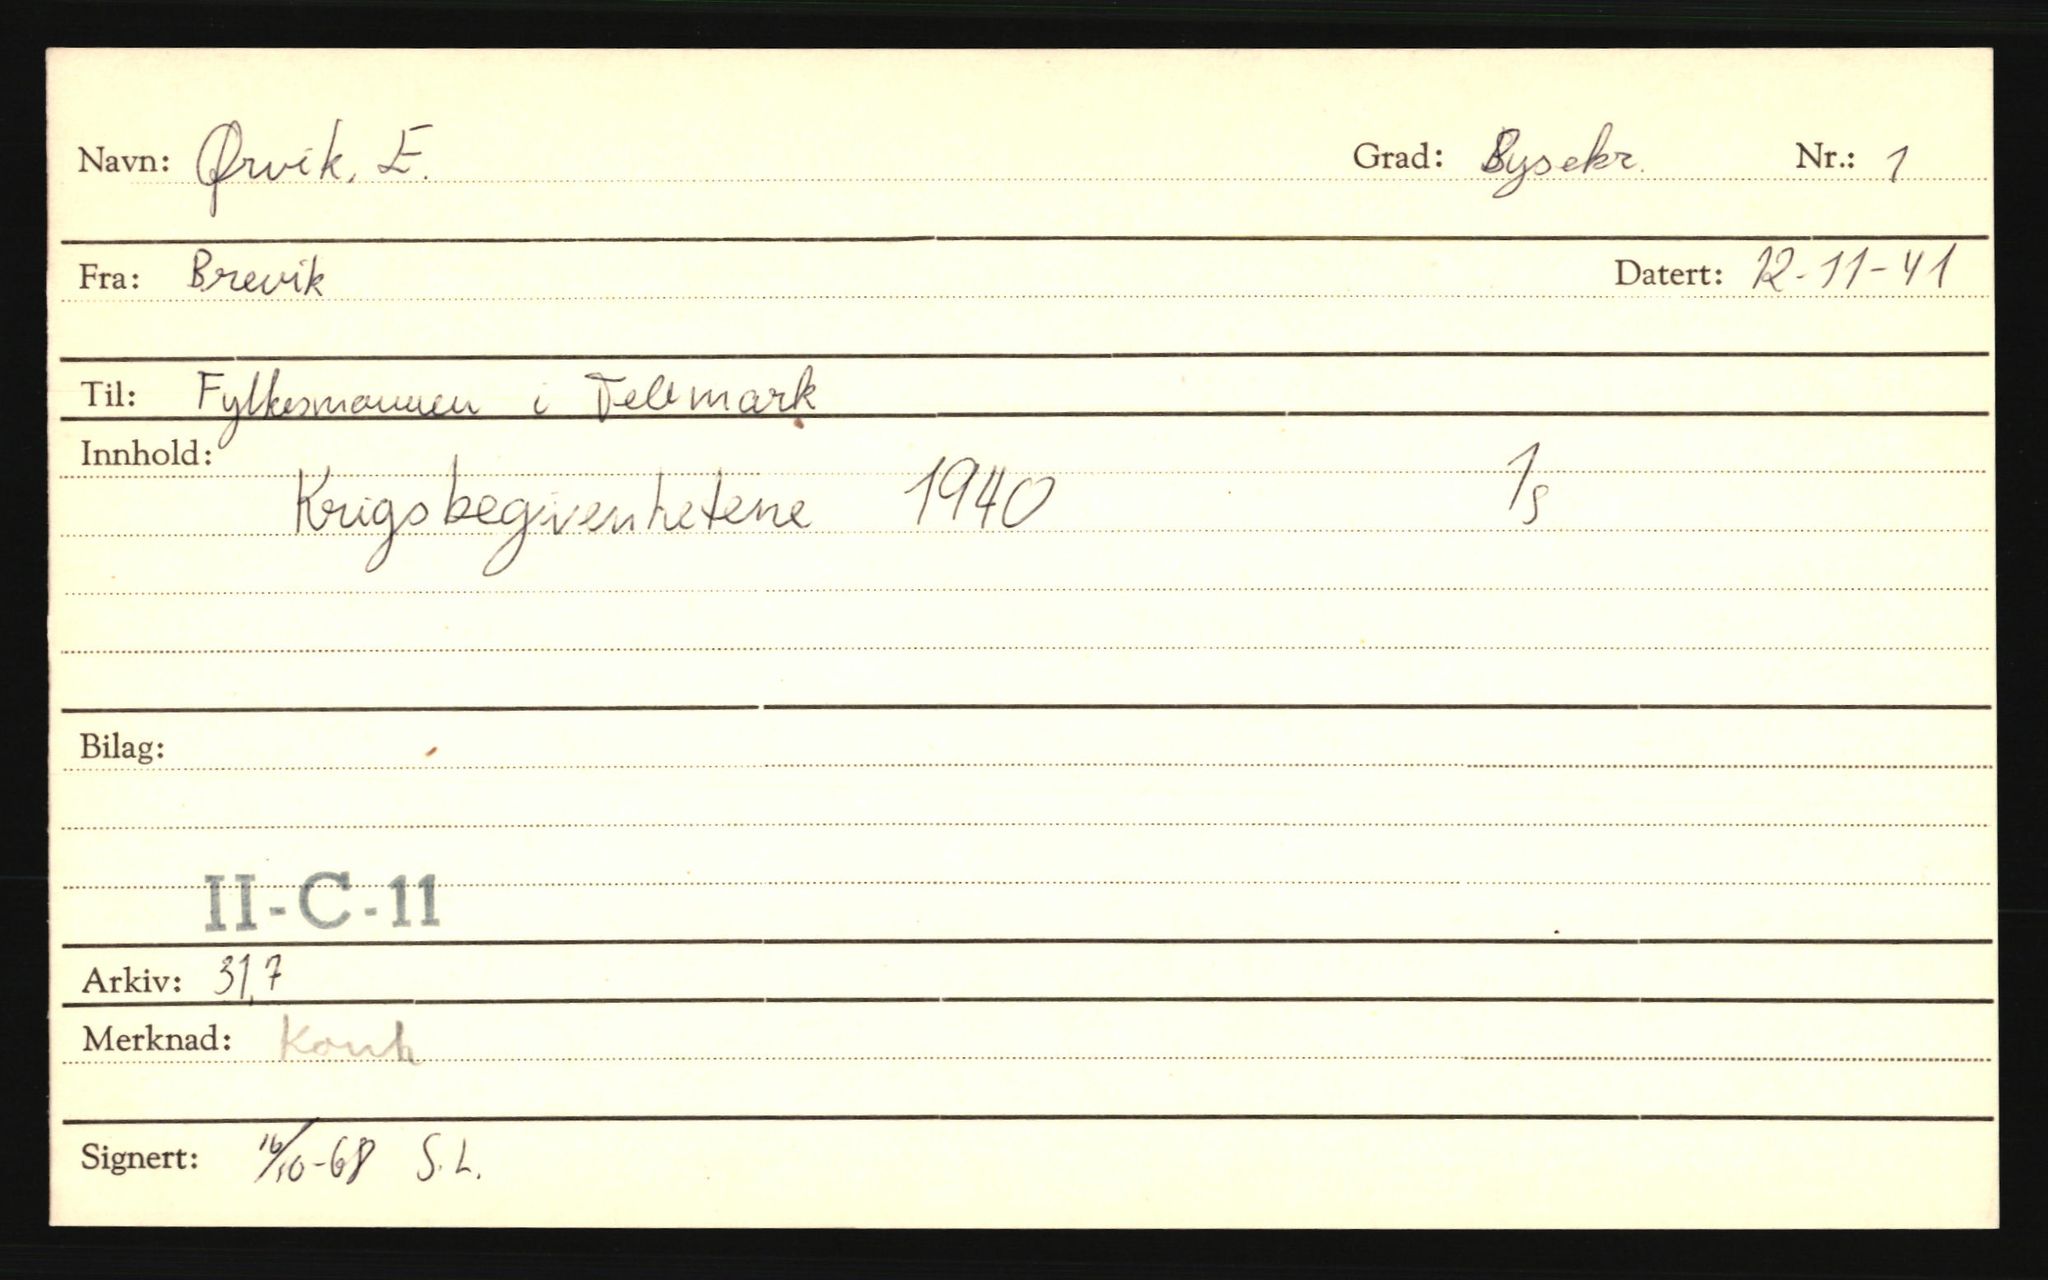 Navn: Ørvik, E. Grad: Bysekr. Nr.: 1
Fra: Brevik Datert: 12-11-41
Til: Fylkesmannen i Telemark
Innhold:
Krigsbegivenhetene 1940 1s
Bilag:
II-C-11
Arkiv: 31,7
Merknad:
Signert: 16/10-68 S.L.